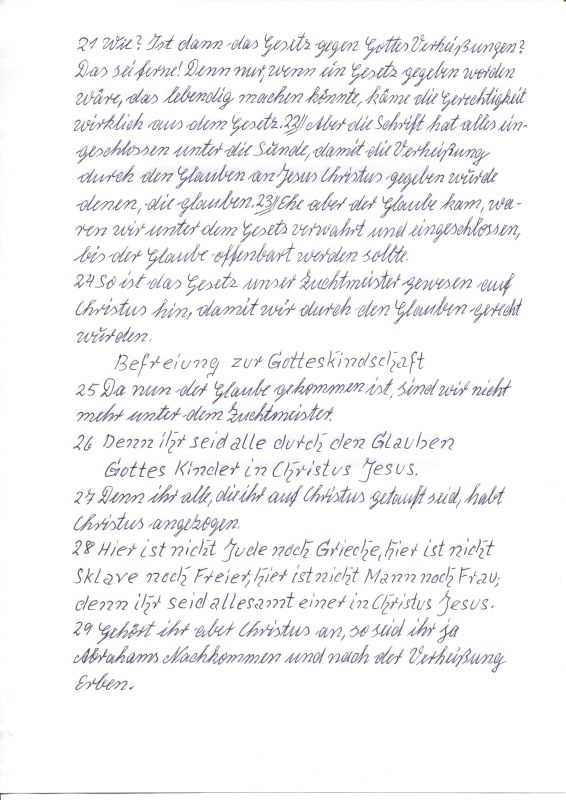 21 Wie? Ist dann das Gesetz gegen Gottes Verheißungen?
Das sei ferne! Denn nur, wenn ein Gesetz gegeben worden
wäre, das lebendig machen könnte, käme die Gerechtigkeit
wirklich aus dem Gesetz. 22// Aber die Schrift hat alles ein-
geschlossen unter die Sünde, damit die Verheißung
durch den Glauben an Jesus Christus gegeben würde
denen, die glauben. 23// Ehe aber der Glaube kam, wa-
ren wir unter dem Gesetz verwahrt und eingeschlossen,
bis der Glaube offenbart werden sollte.
24 So ist das Gesetz unser Zuchtmeister gewesen auf
Christus hin, damit wir durch den Glauben gerecht
würden.
Befreiung zur Gotteskindschaft
25 Da nun der Glaube gekommen ist, sind wir nicht
mehr unter dem Zuchtmeister.
26 Denn ihr seid alle durch den Glauben
Gottes Kinder in Christus Jesus.
27 Denn ihr alle, die ihr auf Christus getauft seid, habt
Christus angezogen.
28 Hier ist nicht Jude noch Grieche, hier ist nicht
Sklave noch Freier, hier ist nicht Mann noch Frau;
denn ihr seid allesamt einer in Christus Jesus.
29 Gehört ihr aber Christus an, so seid ihr ja
Abrahams Nachkommen und nach der Verheißung
Erben.